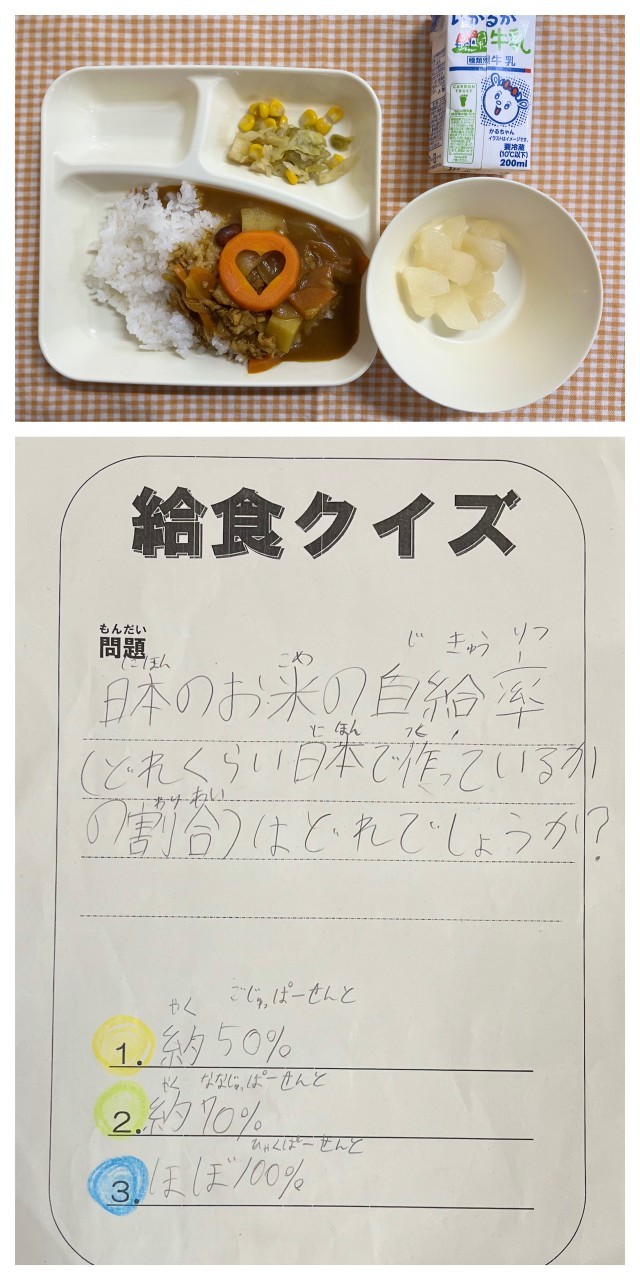 いかるが
牛乳
種類別 牛乳
CARBON
TRUST
かるちゃん
イラストはイメージです。
要冷蔵
(10℃以下)
200ml
給食クイズ
もんだい
問題
にほん こめ じ きゅう りつ
日本のお米の自給率
に ほん つく
(どれくらい日本で作っているか
わり わい
の割合)はどれでしょうか?
やく ごじゅっぱーせんと
1. 約50%
やく ななじゅっぱーせんと
2. 約70%
ひゃくぱーせんと
3. ほぼ100%